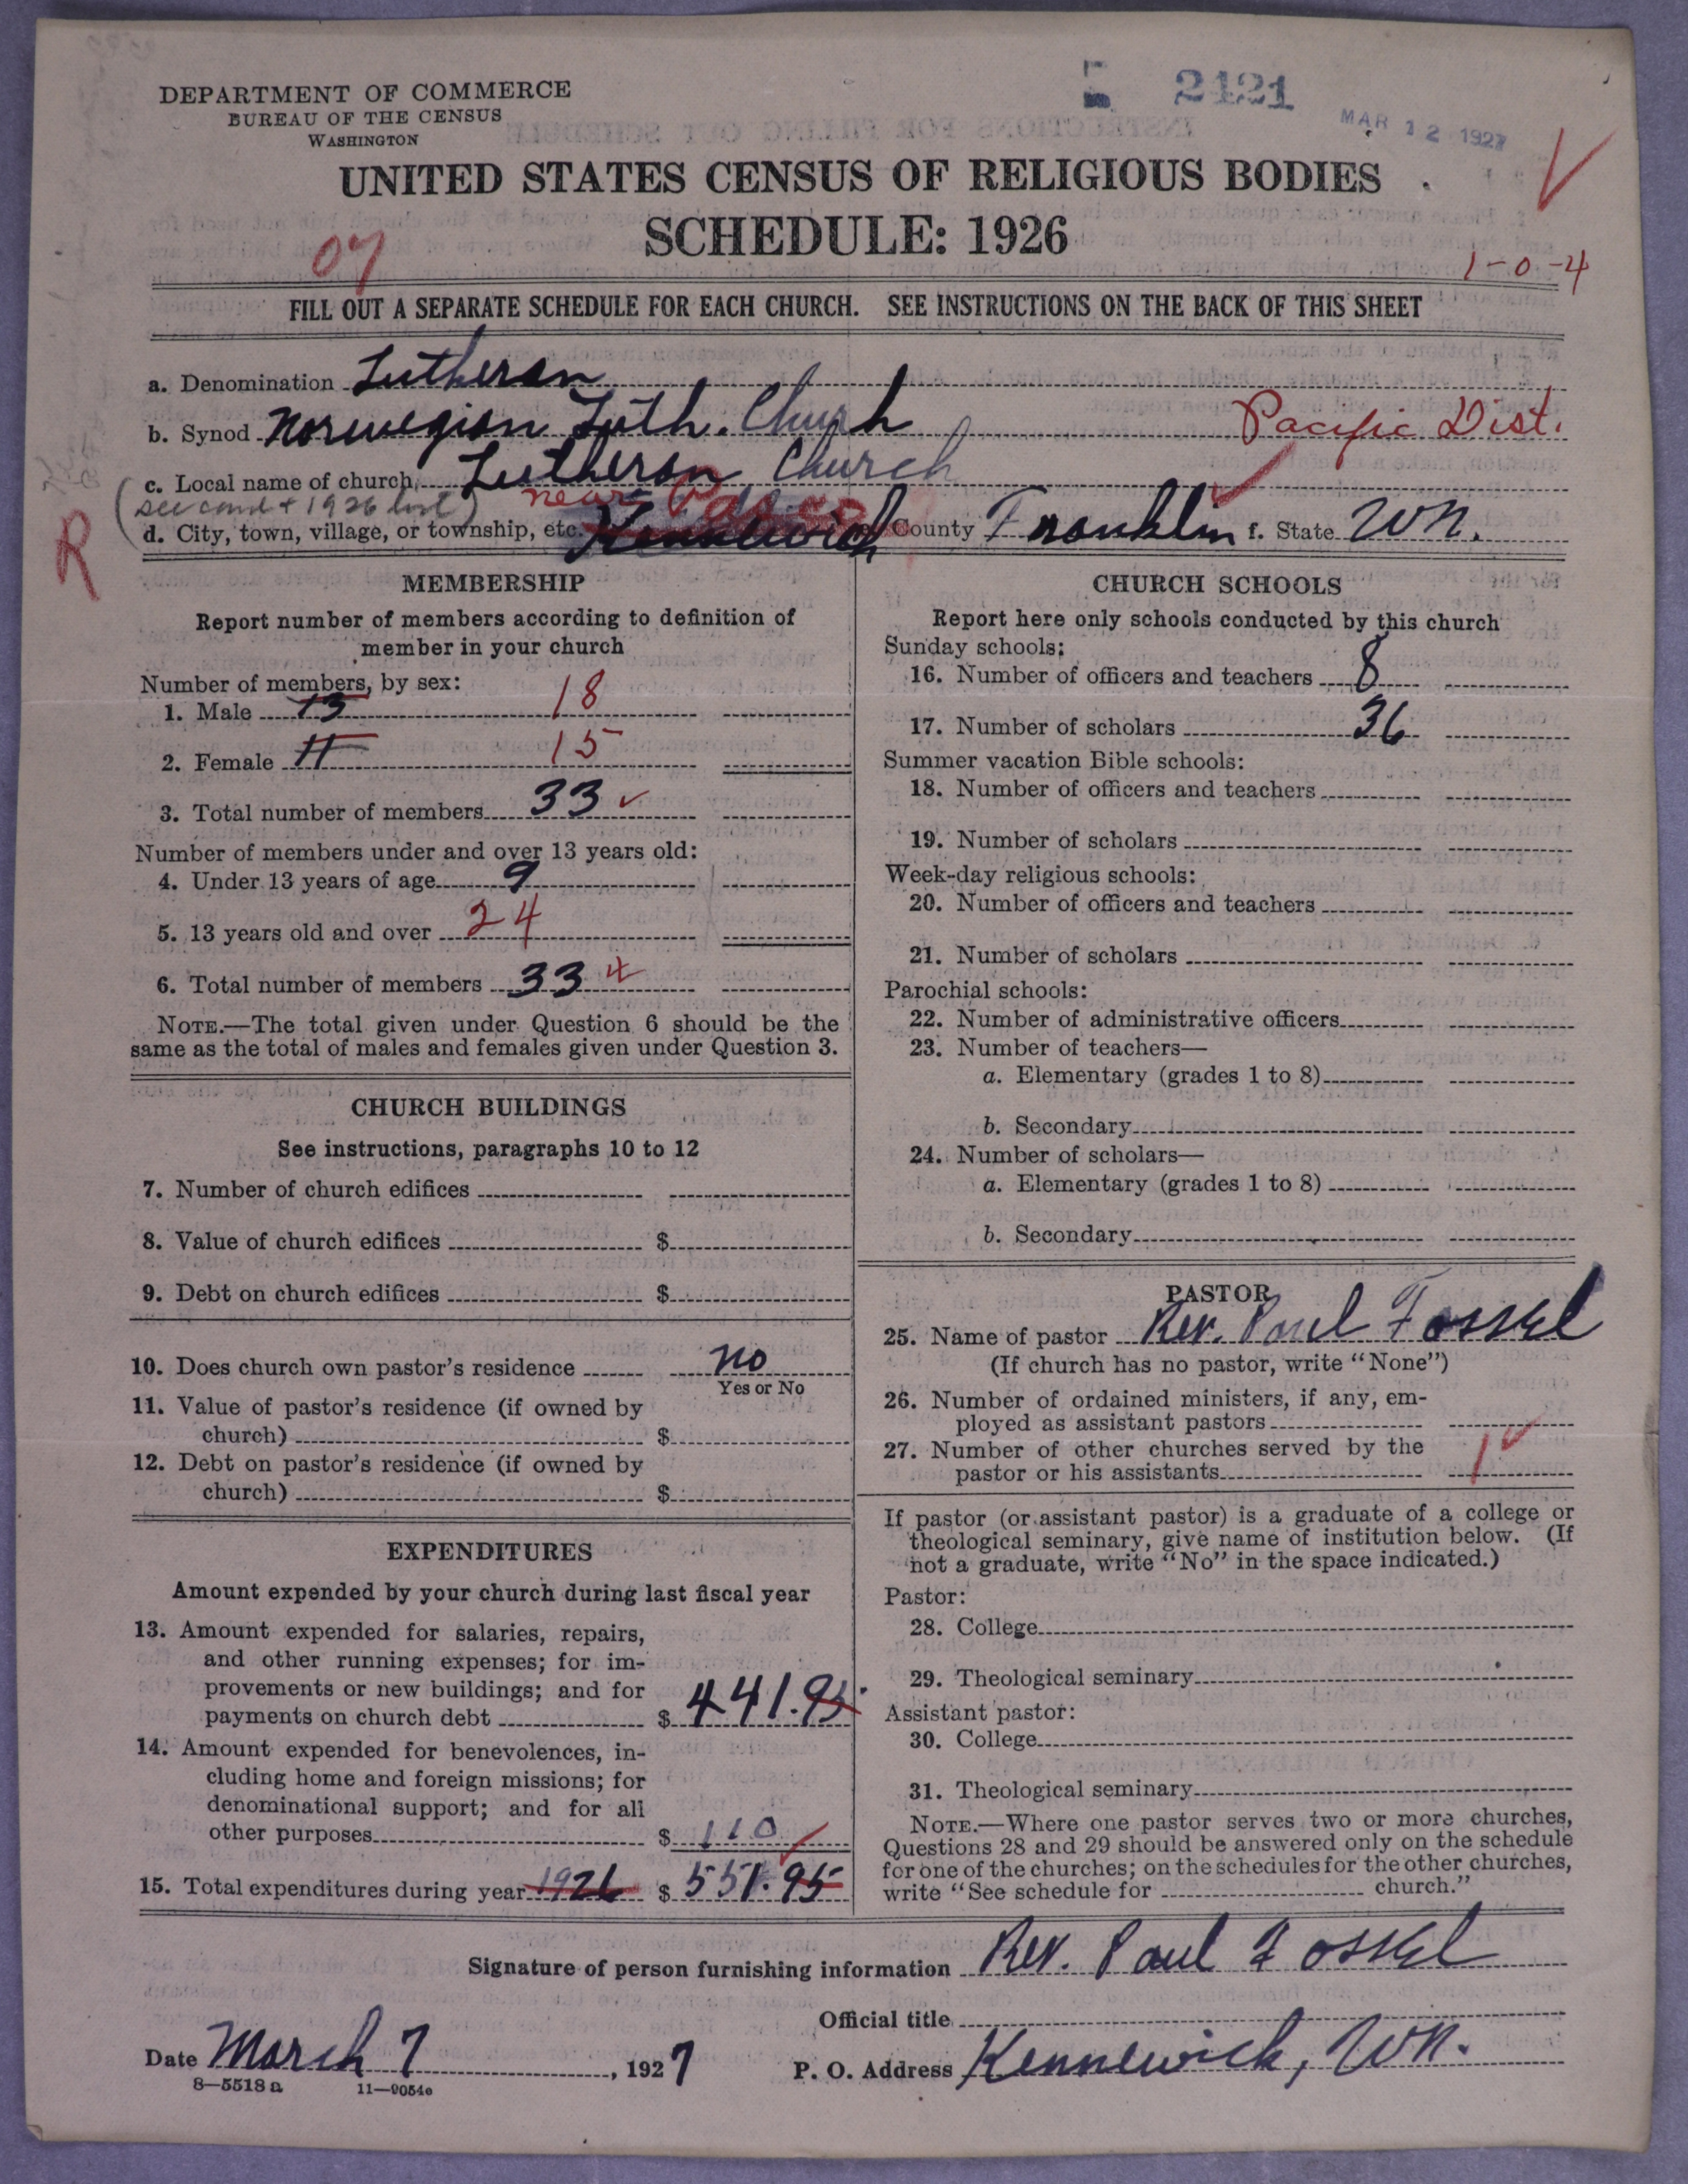 DEPARTMENT OF COMMERCE
BUREAU OF THE CENSUS
WASHINGTON
2421
MAR 12 1927
UNITED STATES CENSUS OF RELIGIOUS BODIES
SCHEDULE: 1926
07
1-0-4
FILL OUT A SEPARATE SCHEDULE FOR EACH CHURCH. SEE INSTRUCTIONS ON THE BACK OF THIS SHEET
a. Denomination Lutheran
b. Synod Norwegian Luth. Church Pacific Dist.
c. Local name of church Lutheran Church
(see card + 1926 list) near Pasco
d. City, town, village, or township, etc. Kennewick County Franklin f. State Wn.
R
MEMBERSHIP
Report number of members according to definition of
member in your church
Number of members, by sex:
1. Male 13 18
2. Female 11 15
3. Total number of members 33
Number of members under and over 13 years old:
4. Under 13 years of age 9
5. 13 years old and over 24
6. Total number of members 33
NOTE.—The total given under Question 6 should be the
same as the total of males and females given under Question 3.
CHURCH BUILDINGS
See instructions, paragraphs 10 to 12
7. Number of church edifices
8. Value of church edifices $
9. Debt on church edifices $
10. Does church own pastor's residence no
Yes or No
11. Value of pastor's residence (if owned by
church) $
12. Debt on pastor's residence (if owned by
church) $
EXPENDITURES
Amount expended by your church during last fiscal year
13. Amount expended for salaries, repairs,
and other running expenses; for im-
provements or new buildings; and for
payments on church debt $ 441.95
14. Amount expended for benevolences, in-
cluding home and foreign missions; for
denominational support; and for all
other purposes $ 110
15. Total expenditures during year 1926 $ 551.95
CHURCH SCHOOLS
Report here only schools conducted by this church
Sunday schools:
16. Number of officers and teachers 8
17. Number of scholars 36
Summer vacation Bible schools:
18. Number of officers and teachers
19. Number of scholars
Week-day religious schools:
20. Number of officers and teachers
21. Number of scholars
Parochial schools:
22. Number of administrative officers
23. Number of teachers—
a. Elementary (grades 1 to 8)
b. Secondary
24. Number of scholars—
a. Elementary (grades 1 to 8)
b. Secondary
PASTOR
25. Name of pastor Rev. Paul Fossel
(If church has no pastor, write "None")
26. Number of ordained ministers, if any, em-
ployed as assistant pastors
27. Number of other churches served by the
pastor or his assistants 1
If pastor (or assistant pastor) is a graduate of a college or
theological seminary, give name of institution below. (If
not a graduate, write "No" in the space indicated.)
Pastor:
28. College
29. Theological seminary
Assistant pastor:
30. College
31. Theological seminary
NOTE.—Where one pastor serves two or more churches,
Questions 28 and 29 should be answered only on the schedule
for one of the churches; on the schedules for the other churches,
write "See schedule for church."
Signature of person furnishing information Rev. Paul Fossel
Official title
Date March 7, 1927 P. O. Address Kennewick, Wn.
8—5518 a 11—9054c